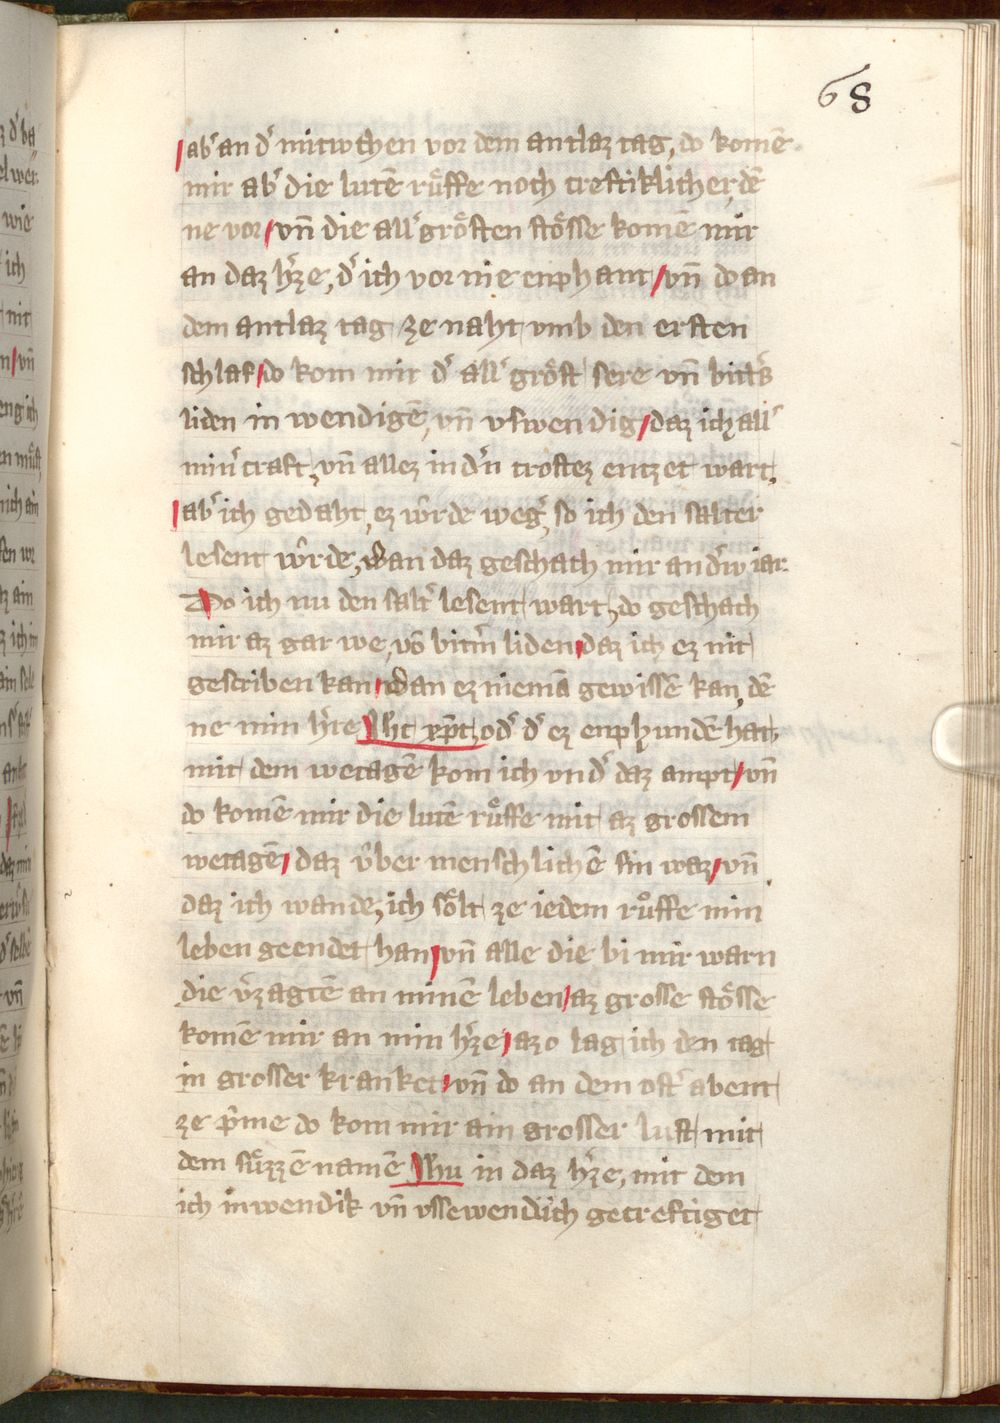 68
abʼ an dʼ mitwchen vor dem antlaz tag, do komē
mir abʼ die lutē růffe noch creftiklicher dē
ne vor / vn̄ die allʼ grősten stősse komē mir
an daz hʼze, dʼ ich vor nie enphant / vn̄ do an
dem antlaz tag ze naht vmb den ersten
schlaf / do kom mir dʼ allʼ gröst sere vn̄ bittʼs
liden in wendigē, vn̄ vswendig / daz ich allʼ
minʼ craft, vn̄ allez indʼn trostez entzet wart,
abʼ ich gedaht, ez wrde wegʼ, so ich den salter
lesent wrde, wan daz geschach mir andʼw iar.
Do ich nu den saltʼ lesent wart, do geschach
mir az gar we, vō bittʼm liden / daz ich ez nit
gescriben kan / wan ez niemā gewissē kan, dē
ne min hʼre Jhc xp̄c, odʼ dʼ ez enphundē hat,
mit dem wetagē kom ich vndʼ daz ampt / vn̄
do komē mir die lutē růffe mit az grossem
wetagē / daz v̂ber menschlichē sin waz / vn̄
daz ich wande, ich sőlt ze iedem růffe min
leben geendet han / vn̄ alle die bi mir warn
die vʼzagtē an minē leben / az grosse stősse
komē mir an min hʼze / azo lag ich den tag
in grosser kranket / vn̄ do an dem ostʼ abent
ze pʼme do kom mir ain grosser lust mit
dem sůzzē namē Jhu in daz hʼze, mit dem
ich inwendik vn̄ vssewendich gecreftiget